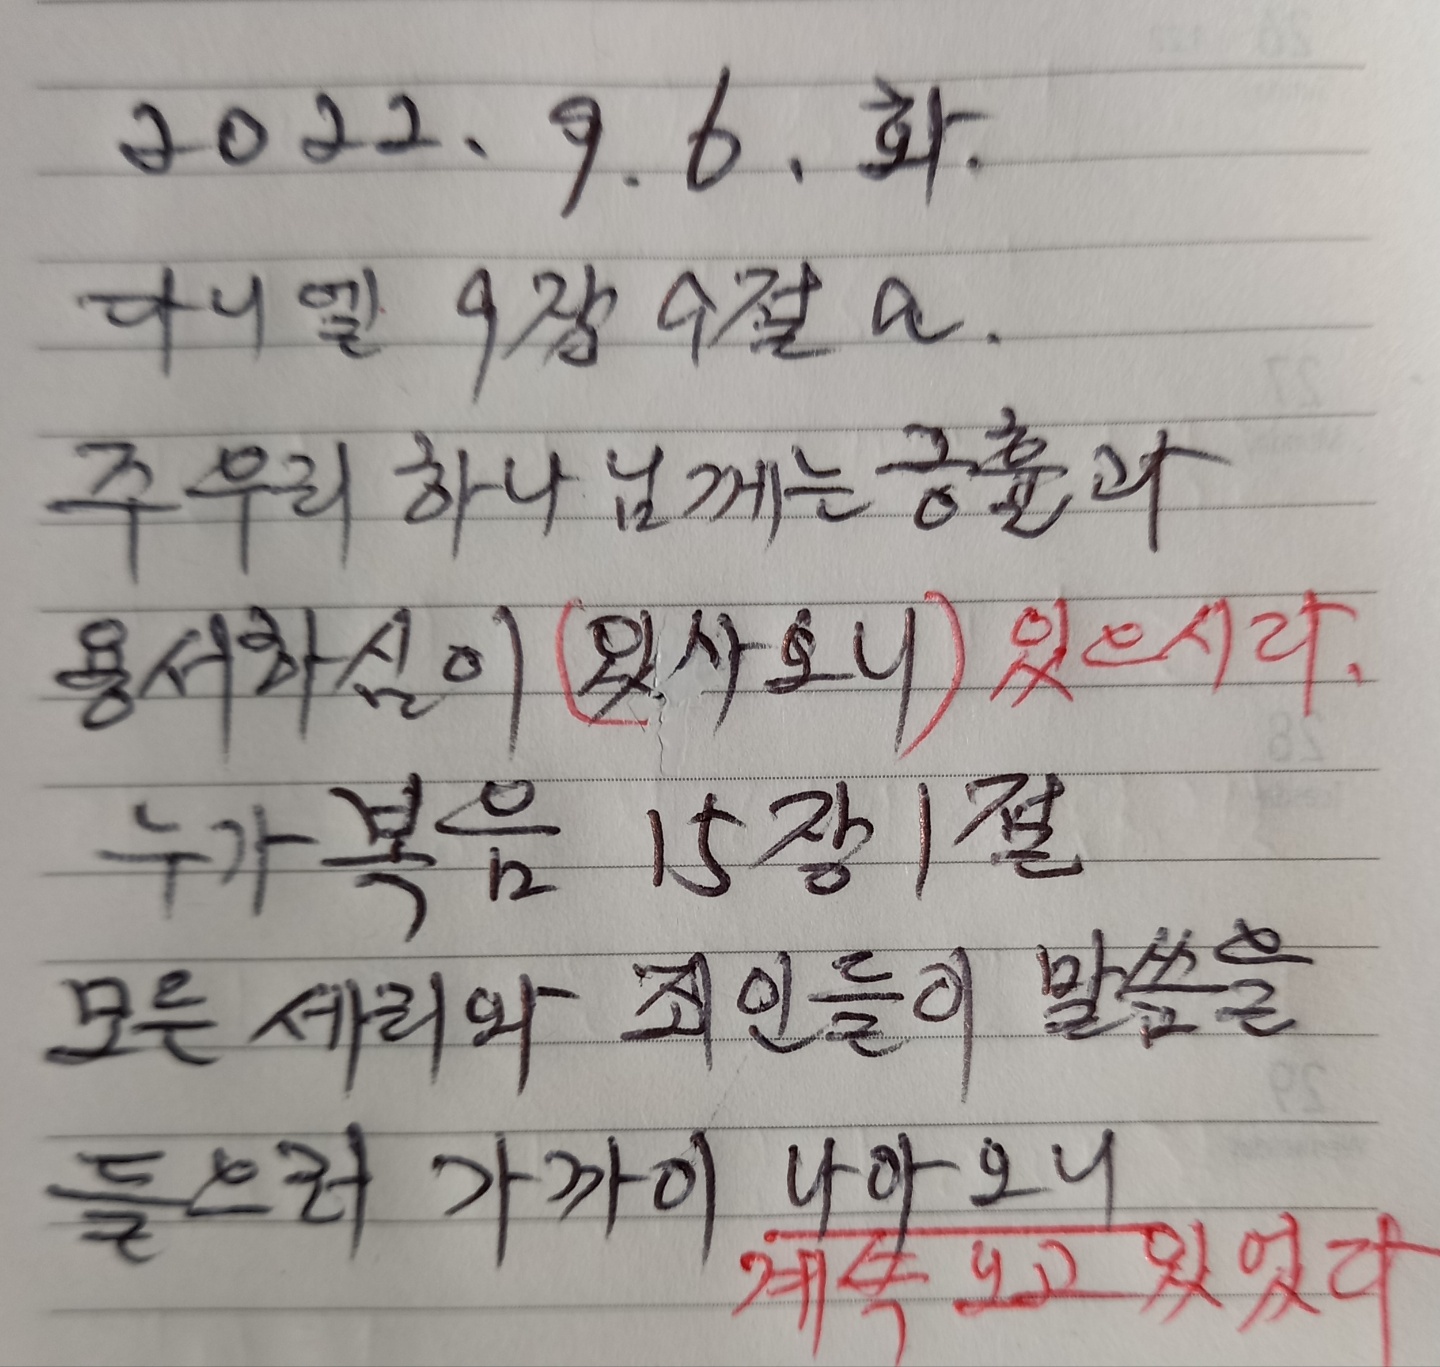 2022. 9. 6. 화.
다니엘 9장 9절 a.
주 우리 하나님께는 긍휼과
용서하심이 (있사오니) 있으시다.
누가복음 15장 1절
모든 세리와 죄인들이 말씀을
들으러 가까이 나아오니
계속 오고 있었다